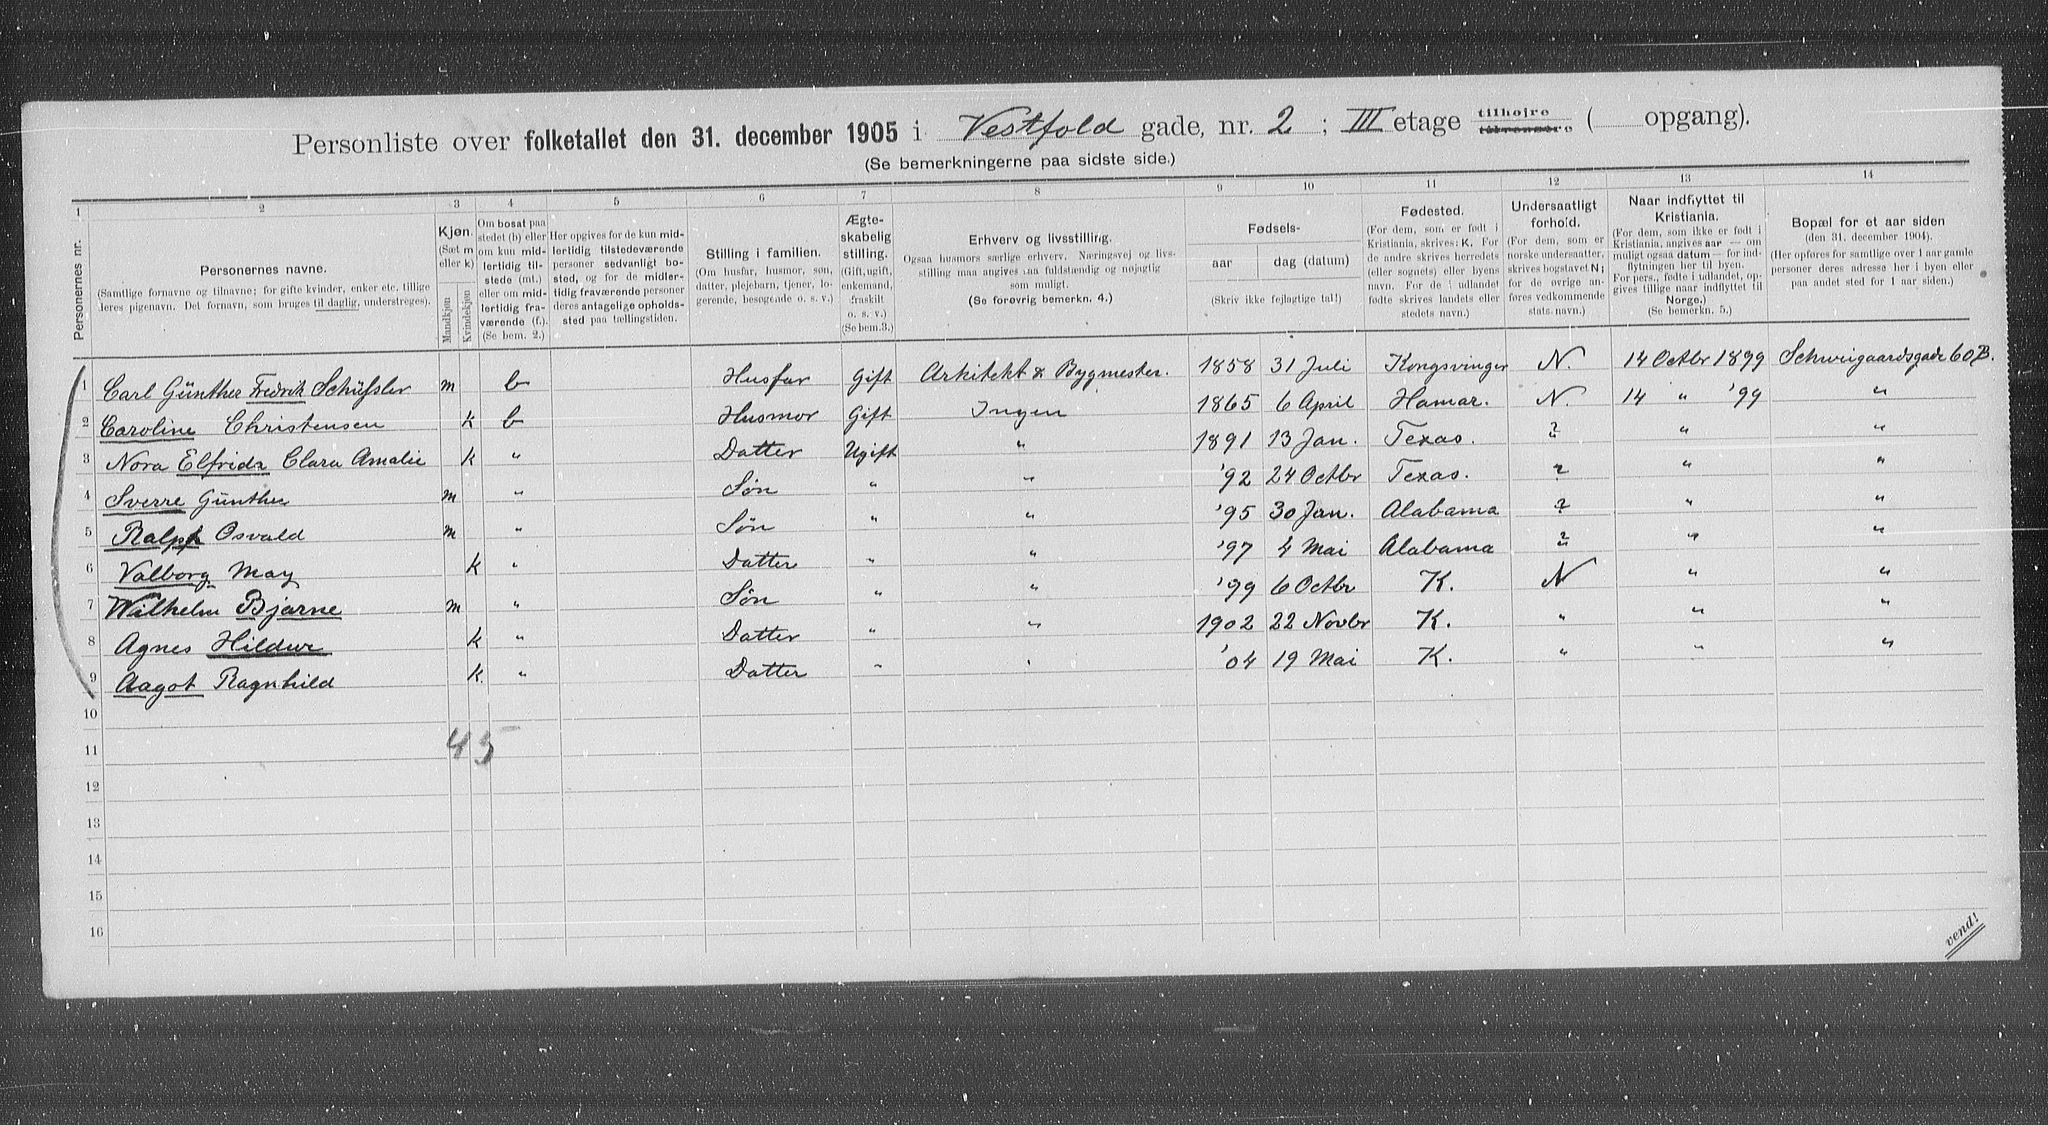 Personliste over folketallet den 31. december 1905 i Vestfold gade, nr. 2 ; III etage tilhøjre tilvenstre ( opgang).
(Se bemerkningerne paa sidste side.)
1 2 3 4 5 6 7 8 9 10 11 12 13 14
Personernes nr.
Personernes navne.
(Samtlige fornavne og tilnavne; for gifte kvinder, enker etc. tillige
deres pigenavn. Det fornavn, som bruges til daglig, understreges).
Kjøn.
(Sæt m
eller k)
Mandkjøn
Kvindekjøn
Om bosat paa
stedet (b) eller
om kun mid-
lertidig til-
stede (mt.)
eller om mid-
lertidig fra-
værende (f.)
(Se bem. 2.)
Her opgives for de kun mid-
lertidig tilstedeværende
personer sedvanligt bo-
sted, og for de midler-
tidig fraværende personer
deres antagelige ophold-
sted paa tællingstiden.
Stilling i familien.
(Om husfar, husmor, søn,
datter, plejebarn, tjener, lo-
gerende, besøgende o. s. v.)
Ægte-
skabelig
stilling.
(Gift, ugift,
enkemand,
fraskilt
o. s. v.)
(Se bem.3.)
Erhverv og livsstilling.
Ogsaa husmors særlige erhverv. Næringsvej og livs-
stilling maa angives saa fuldstændig og nøjagtig
som muligt.
(Se forøvrig bemerkn. 4.)
Fødsels-
aar dag (datum)
(Skriv ikke fejlagtige tal!)
Fødested.
(For dem, som er født i
Kristiania, skrives: K. For
de andre skrives herredets
(eller sognets) eller byens
navn. For de i udlandet
fødte skrives landets eller
stedets navn.)
Undersaatligt
forhold.
(For dem, som er
norske undersaatter,
skrives bogstavet N;
for de øvrige an-
føres vedkommende
stats navn.)
Naar indflyttet til
Kristiania.
(For dem, som ikke er født i
Kristiania, angives aar — om
muligt ogsaa datum — for ind-
flytningen her til byen.
For pers., fødte i udlandet, op-
gives tillige naar indflyttet til
Norge.)
(Se bemerkn. 5.)
Bopæl for et aar siden
(den 31. december 1904).
(Her opføres for samtlige over 1 aar gamle
personer deres adresse her i byen eller
paa andet sted for 1 aar siden.)
1 Carl Günther Fredrik Schüssler m b Husfar Gift Arkitekt & Bygmester. 1858 31 Juli Kongsvinger N. 14 Octbr 1899 Schweigaardsgade 60B.
2 Caroline Christensen k b Husmor Gift Ingen 1865 6 April Hamar. N 14 " '99 "
3 Nora Elfrida Clara Amalie k " Datter Ugift " 1891 13 Jan. Texas. ? " "
4 Sverre Günther m " Søn " " '92 24 Octbr Texas. ? " "
5 Ralph Osvald m " Søn " " '95 30 Jan. Alabama ? " "
6 Valborg May k " Datter " " '97 4 Mai Alabama ? " "
7 Wilhelm Bjarne m " Søn " " '99 6 Octbr K. N " "
8 Agnes Hildur k " Datter " " 1902 22 Novbr K. " " "
9 Aagot Ragnhild k. " Datter " " '04 19 Mai K. " " "
10
11 4 5
12
13
14
15
16
vend!